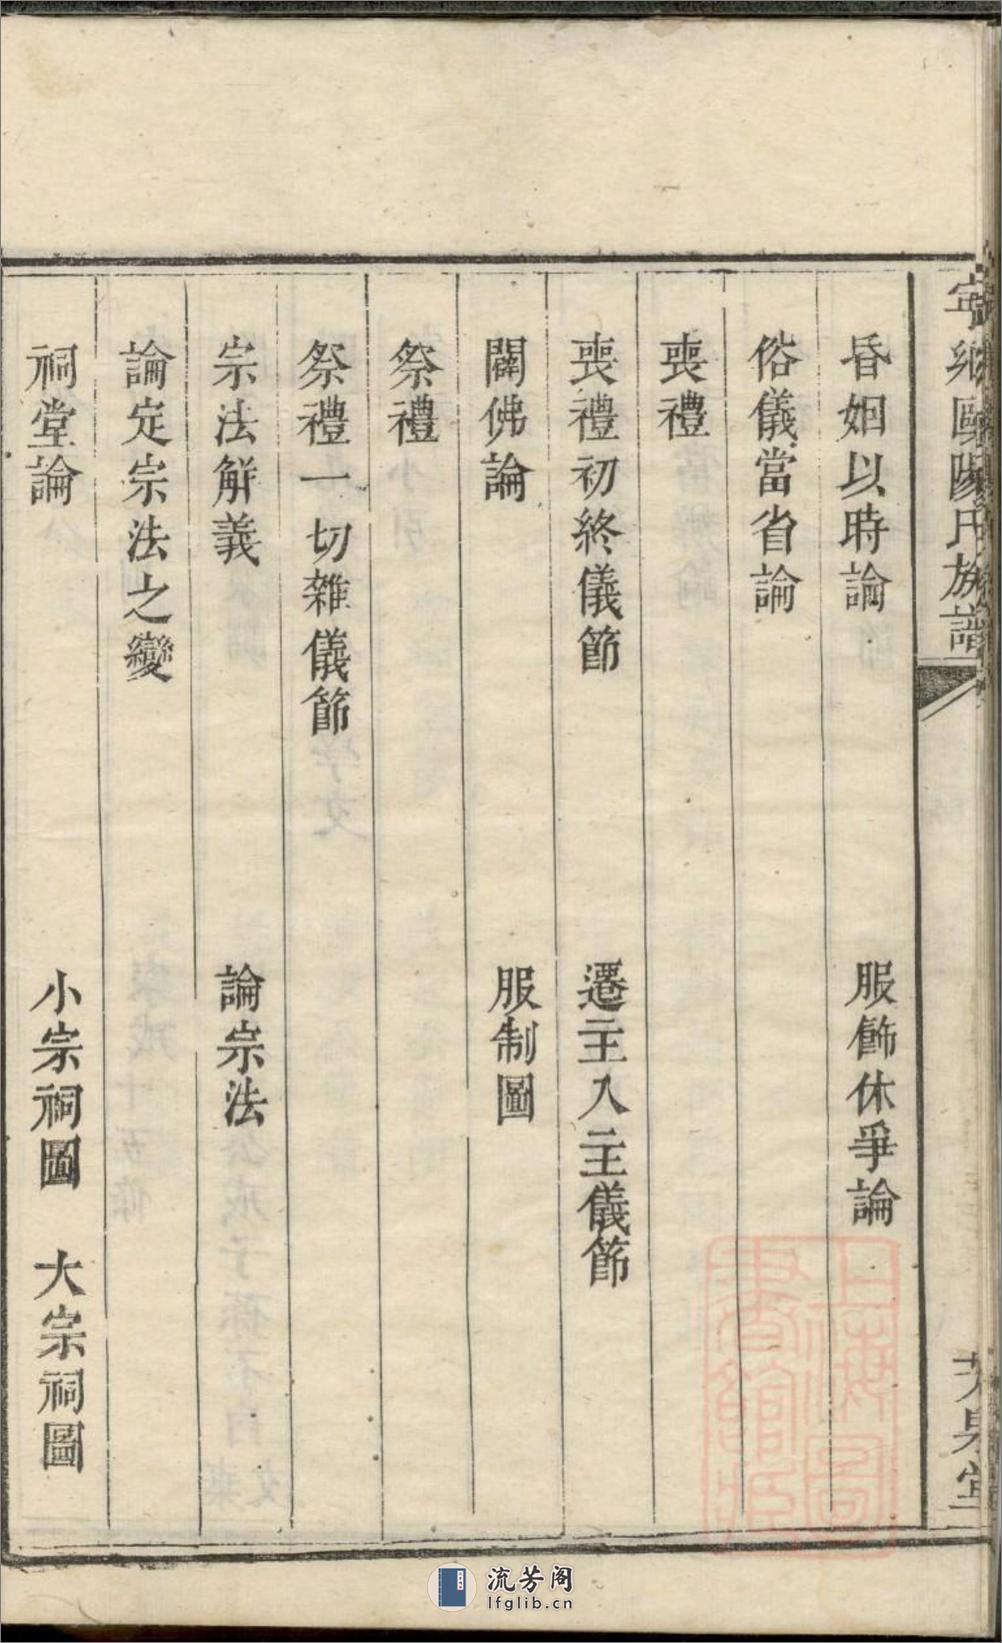 寧鄉歐陽氏族譜
昏姻以時論　服飾休爭論
俗儀當省論
喪禮
喪禮初終儀節　遷主入主儀節
闢佛論　服制圖
祭禮
祭禮一切雜儀節
宗法解義　論宗法
論定宗法之變
祠堂論　小宗祠圖　大宗祠圖
泉堂
上海圖書館藏
流芳阁
lfglib.cn